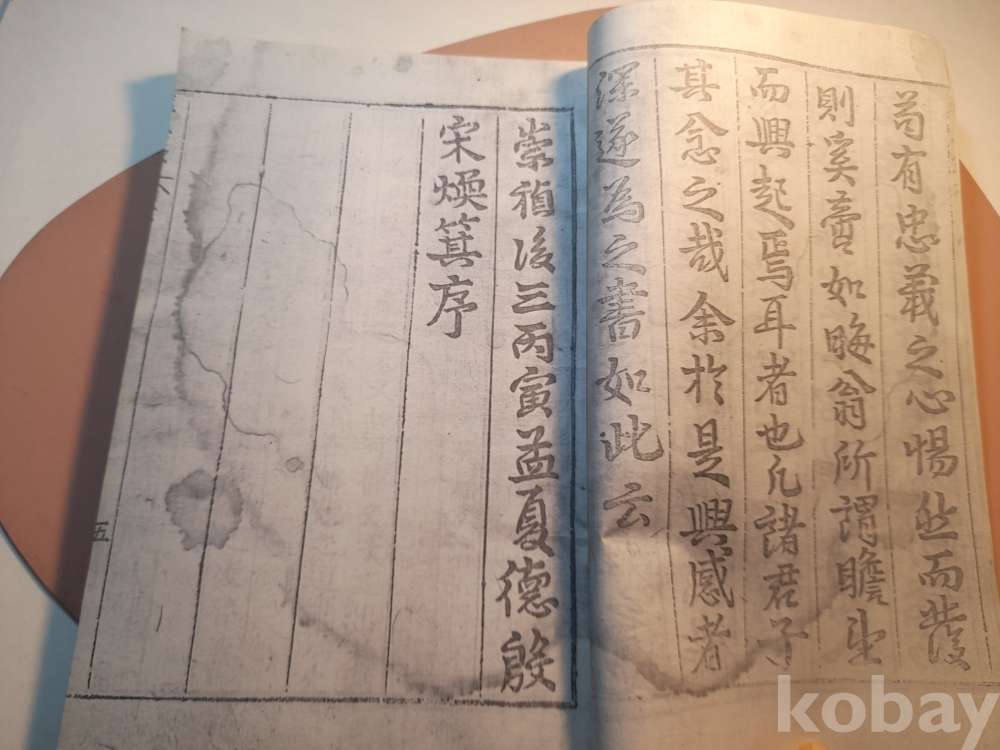 苟有忠義之心惕然而發
則奚啻如晦翁所謂瞻望
而興起焉耳者也凡諸君子
其念之哉余於是興感者
深遂為之書如此云
崇禎後三丙寅孟夏德殷
宋煥箕序
五
kobay